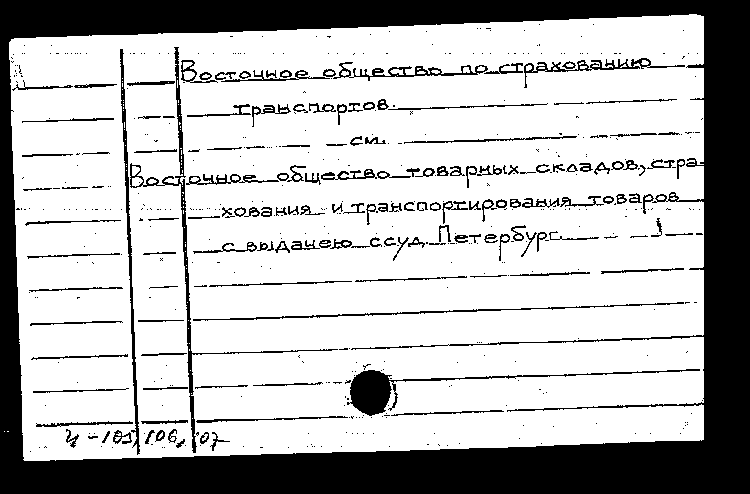 Восточное общество по страхованию
транспортов.
см.
Восточное общество товарных складов, стра-
хования и транспортирования товаров
с выдачею ссуд. Петербург.
И-105, 106, 107